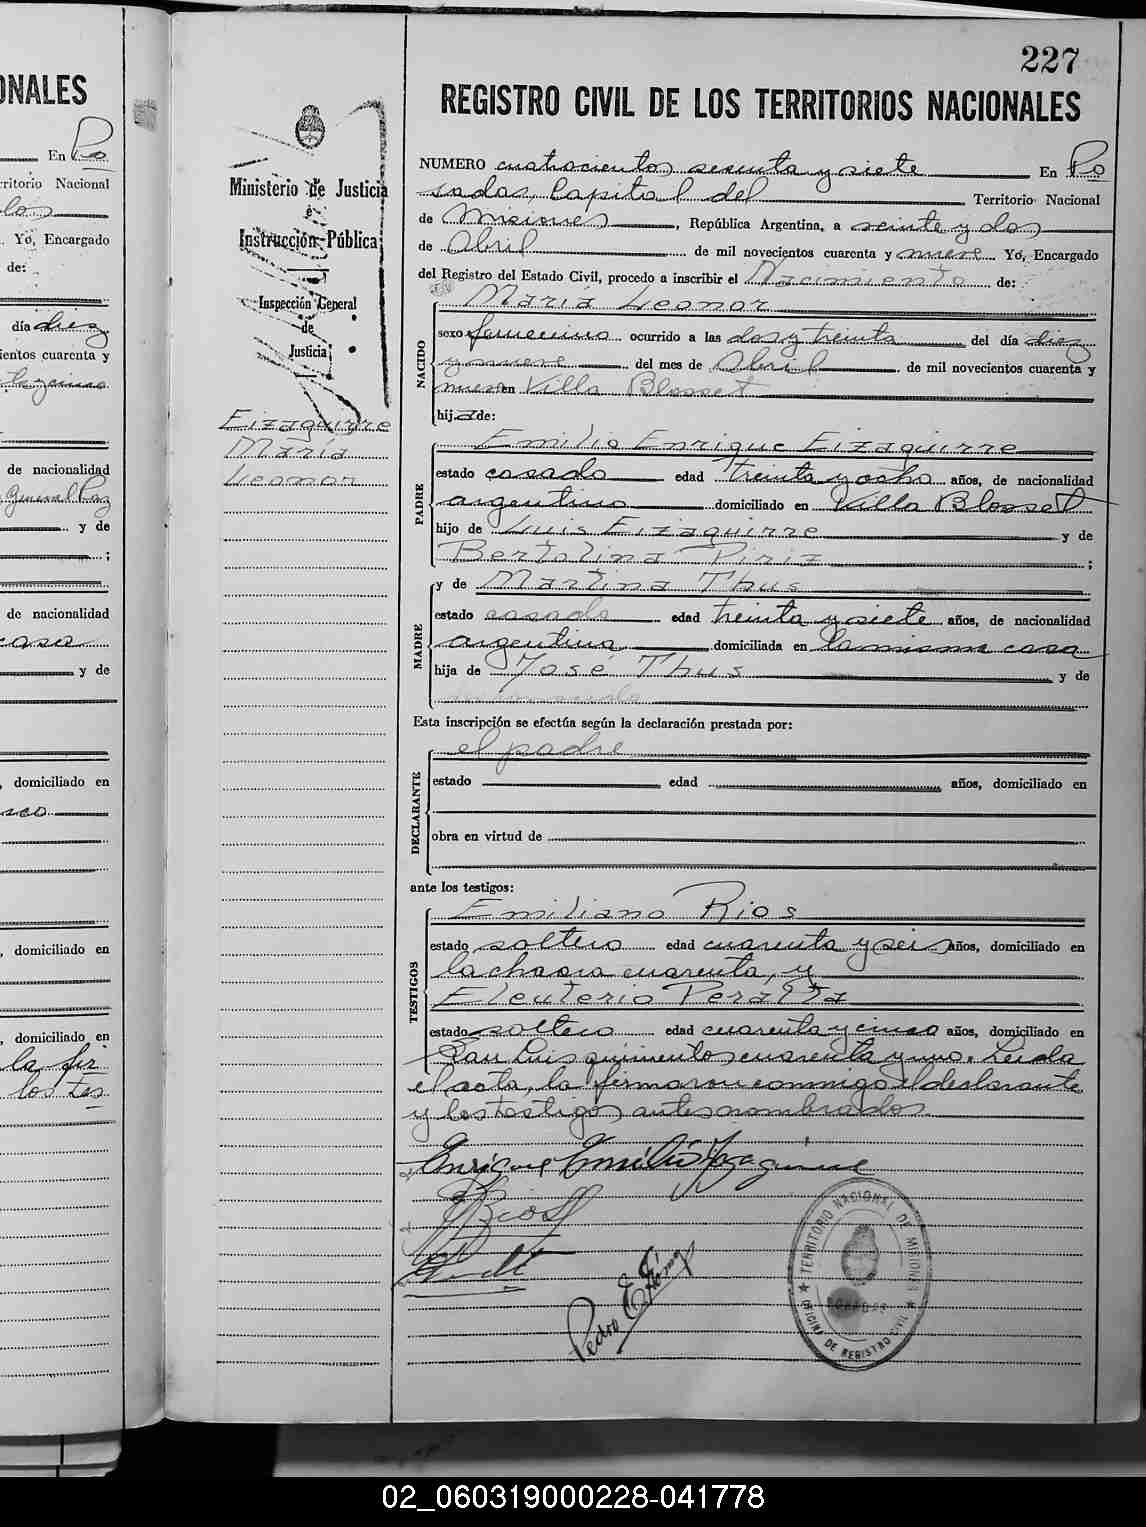 227
ONALES
REGISTRO CIVIL DE LOS TERRITORIOS NACIONALES
En Po
ritorio Nacional
Yo, Encargado
de:
día diez
ientos cuarenta y
de nacionalidad
General Paz
y de
;
de nacionalidad
casa
y de
, domiciliado en
, domiciliado en
, domiciliado en
la fir
los tes
Ministerio de Justicia
é
Instrucción Pública
Inspección General
de
Justicia
Eizaguirre
María
Leonor
NUMERO cuatrocientos sesenta y siete En Po
sadas, Capital del Territorio Nacional
de Misiones, República Argentina, a veinte y dos
de Abril de mil novecientos cuarenta y nueve Yo, Encargado
del Registro del Estado Civil, procedo a inscribir el Nacimiento de:
María Leonor
NACIDO
sexo femenino ocurrido a las dos y treinta del día diez
y nueve del mes de Abril de mil novecientos cuarenta y
nueve en Villa Blosset
hija de:
Emilio Enrique Eizaguirre
PADRE
estado casado edad treinta y ocho años, de nacionalidad
argentino domiciliado en Villa Blosset
hijo de Luis Eizaguirre y de
Bertolina Piriz ;
y de Martina Thus
MADRE
estado casada edad treinta y siete años, de nacionalidad
argentina domiciliada en la misma casa
hija de José Thus y de
Esta inscripción se efectúa según la declaración prestada por:
el padre
DECLARANTE
estado edad años, domiciliado en
obra en virtud de
ante los testigos:
Emiliano Rios
TESTIGOS
estado soltero edad cuarenta y seis años, domiciliado en
la chacra cuarenta, y
Eleuterio Peralta
estado soltero edad cuarenta y cinco años, domiciliado en
San Luis quinientos cuarenta y uno. Leída
el acta, la firmaron conmigo el declarante
y los testigos antes nombrados.
Enrique Emilio Yzaguirre
Rios
Pedro E.
TERRITORIO NACIONAL DE MISIONES
POSADAS
OFICINA DE REGISTRO CIVIL
02_060319000228-041778